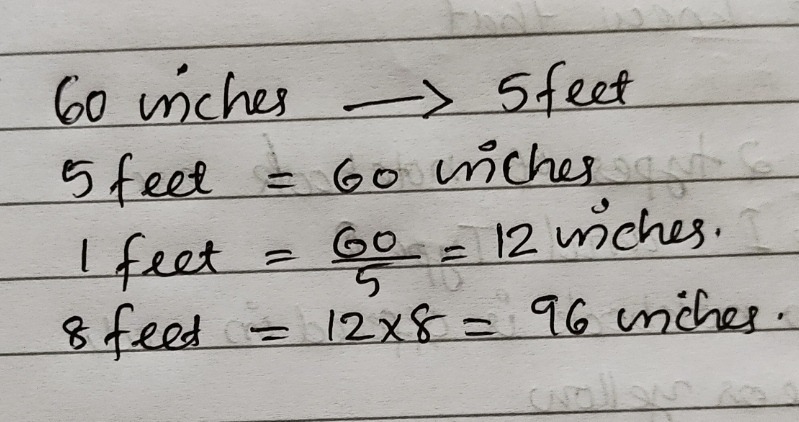 60 inches → 5 feet
5 feet = 60 inches
1 feet = 60/5 = 12 inches.
8 feet = 12×8 = 96 inches.